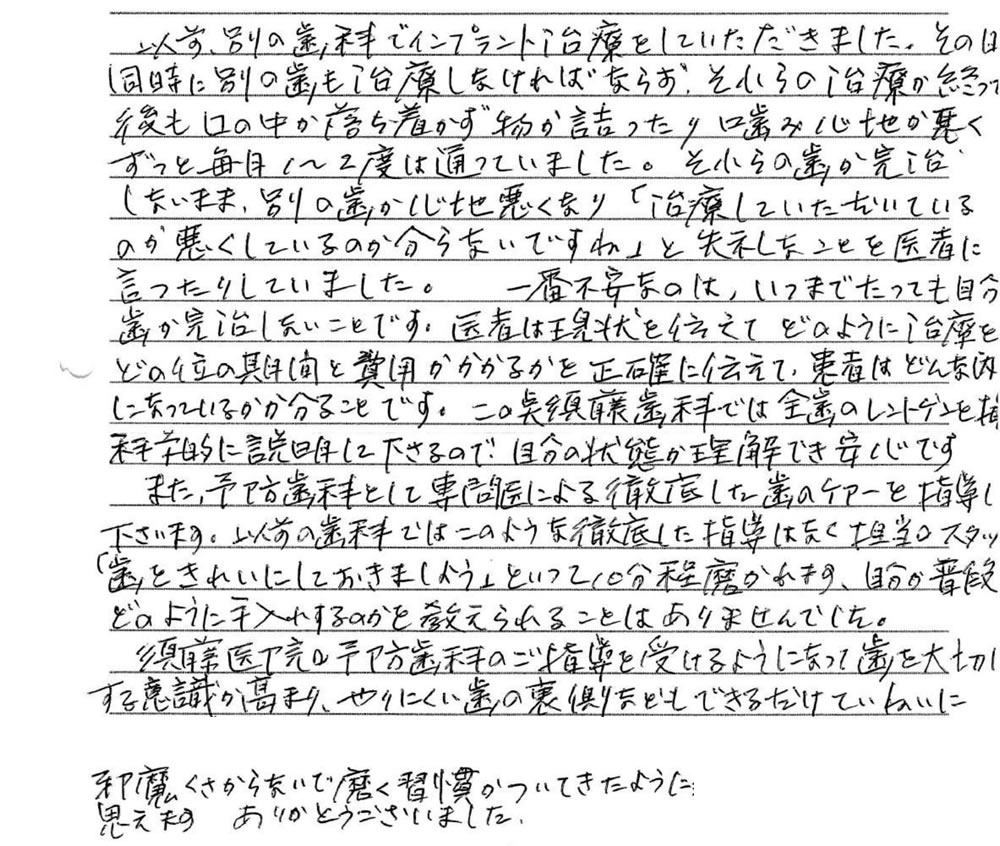 以前、別の歯科でインプラント治療をしていただきました。その
同時に別の歯も治療しなければならず、それらの治療が終って
後も口の中が落ち着かず物が詰ったり噛み心地が悪く
ずっと毎月1〜2度は通っていました。それらの歯が完治
しないまま、別の歯が心地悪くなり「治療していただいている
のか悪くしているのか分らないですね」と失礼なことを医者に
言ったりしていました。 一番不安なのは、いつまでたっても自分
歯が完治しないことです。医者は現状を伝えてどのように治療を
どの位の期間と費用がかかるかを正確に伝えて、患者はどんな
になっているかが分ることです。この点須藤歯科では全歯のレントゲンを
科学的に説明して下さるので、自分の状態が理解でき安心です
また、予防歯科として専門医による徹底した歯のケアーを指導し
下さいます。以前の歯科ではこのような徹底した指導はなく担当のスタッ
「歯をきれいにしておきましょう」といって10分程磨かれます、自分が普段
どのように手入れするのかを教えられることはありませんでした。
須藤医院の予防歯科のご指導を受けるようになって歯を大切に
する意識が高まり、やりにくい歯の裏側などもできるだけていねいに
邪魔くさがらないで磨く習慣がついてきたように
思えます ありがとうございました.